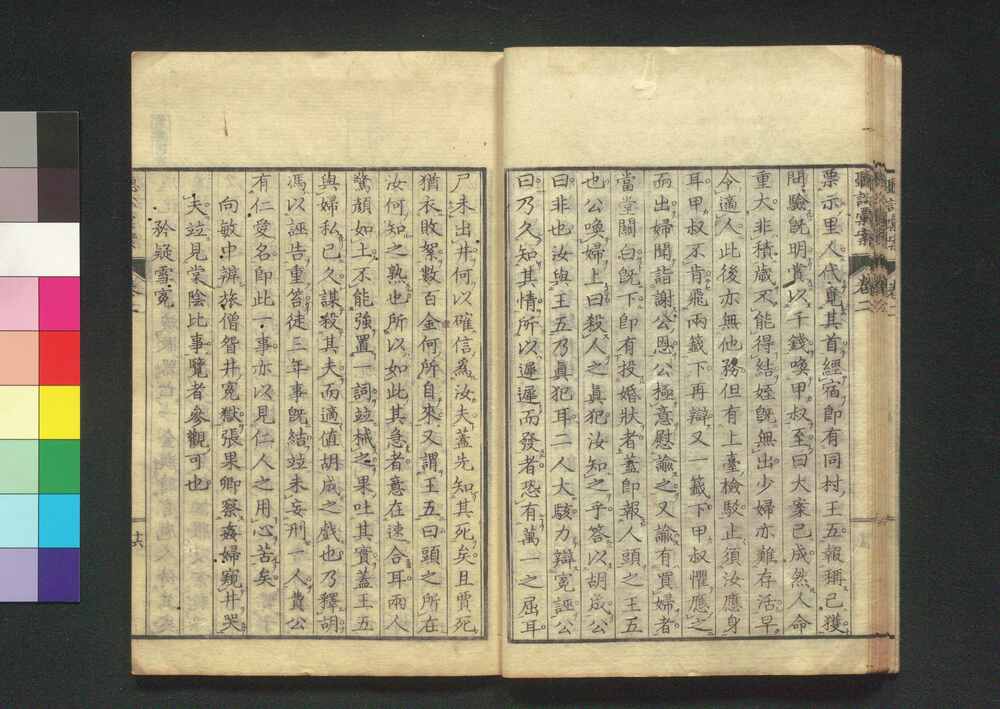 聽訟彙案 卷二
票示里人代覓其首經宿即有同村王五報稱已獲
問驗旣明賞以千錢喚甲叔至曰大案已成然人命
重大非積歲不能得結姪旣無出少婦亦難存活早
令適人此後亦無他務但有上臺檢駁止須汝應身
耳甲叔不肯飛兩籤下再辯又一籤下甲叔懼應之
而出婦聞詣謝公恩公極意慰諭之又諭有買婦者
當堂關白旣下即有投婚狀者蓋即報人頭之王五
也公喚婦上曰殺人之真犯汝知之乎答以胡成公
曰非也汝與王五乃真犯耳二人大駭力辯寃誣公
曰乃久知其情所以遲遲而發者恐有萬一之屈耳
尸未出井何以確信爲汝夫蓋先知其死矣且賈死
猶衣敗絮數百金何所自來又謂王五曰頭之所在
汝何知之熟也所以如此其急者意在速合耳兩人
驚顏如土不能強置一詞竝械之果吐其實蓋王五
與婦私已久謀殺其夫而適值胡成之戲也乃釋胡
馮以誣告重笞徒三年事旣結竝未妄刑一人費公
有仁愛名即此一事亦以見仁人之用心苦矣
向敏中辨旅僧眢井寃獄張果卿察姦婦窺井哭
夫竝見棠陰比事覽者參觀可也
矜疑雪寃
十六